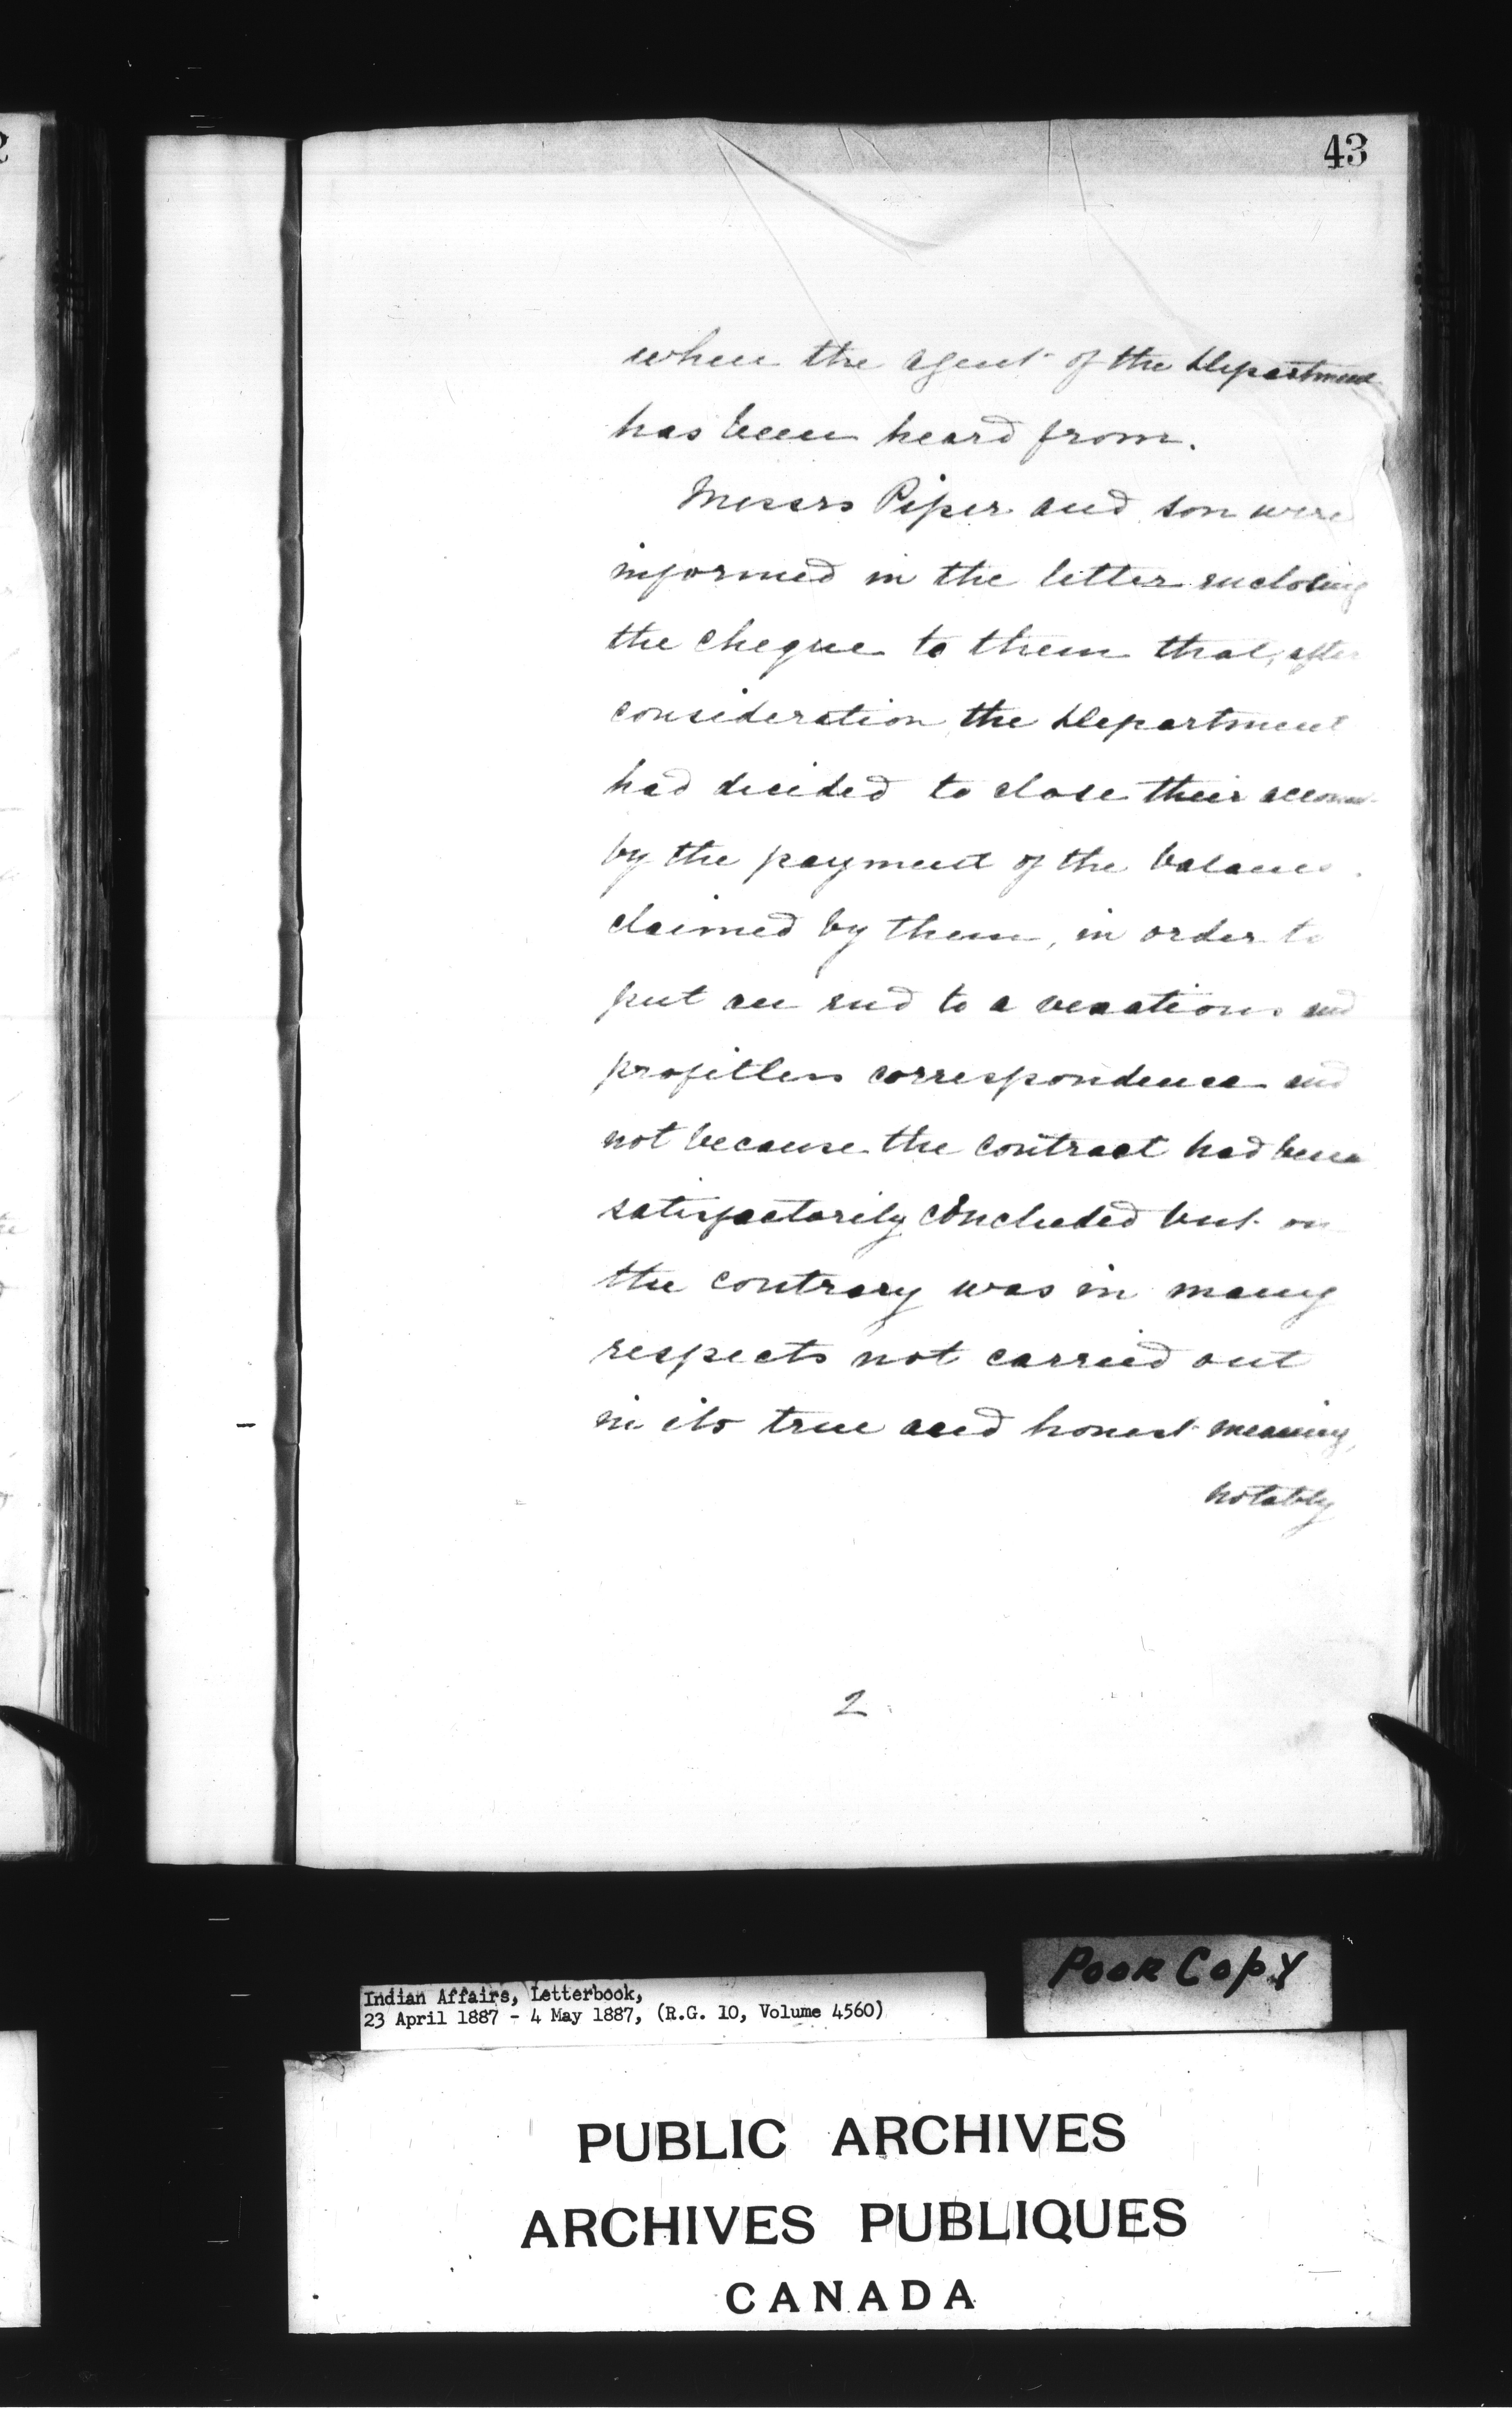 43
when the agent of the Department
has been heard from.
Messrs Piper and son were
informed in the letter enclosing
the cheque to them that, after
consideration, the Department
had decided to close their account
by the payment of the balance
claimed by them, in order to
put an end to a vexatious and
profitless correspondence and
not because the contract had been
satisfactorily concluded but on
the contrary was in many
respects not carried out
in its true and honest meaning,
notably
2
POOR COPY
Indian Affairs, Letterbook,
23 April 1887 - 4 May 1887, (R.G. 10, Volume 4560)
PUBLIC ARCHIVES
ARCHIVES PUBLIQUES
CANADA